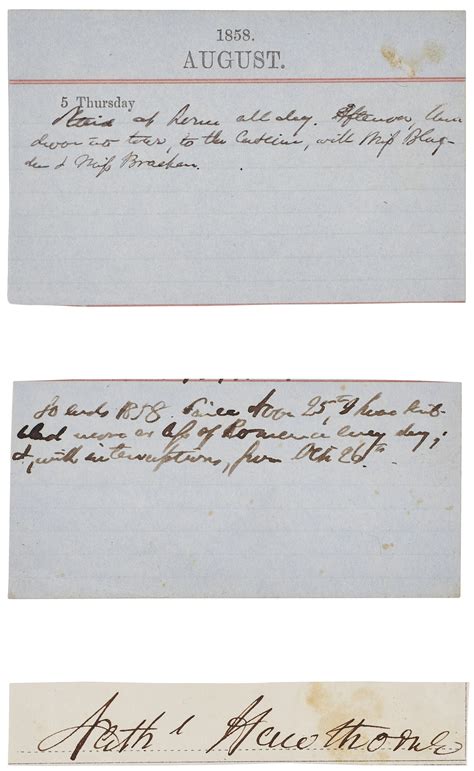 1858.
AUGUST.
5 Thursday
at home all day. Afternoon, Una
drove into town, to the Cascine, with Miß Blag-
den & Miß Bracken.
So ends 1858. Since Nov 25th, I have scrib-
bled more or less of Romance every day;
&, with interruptions, from Oct 26th.
Nathl Hawthorne